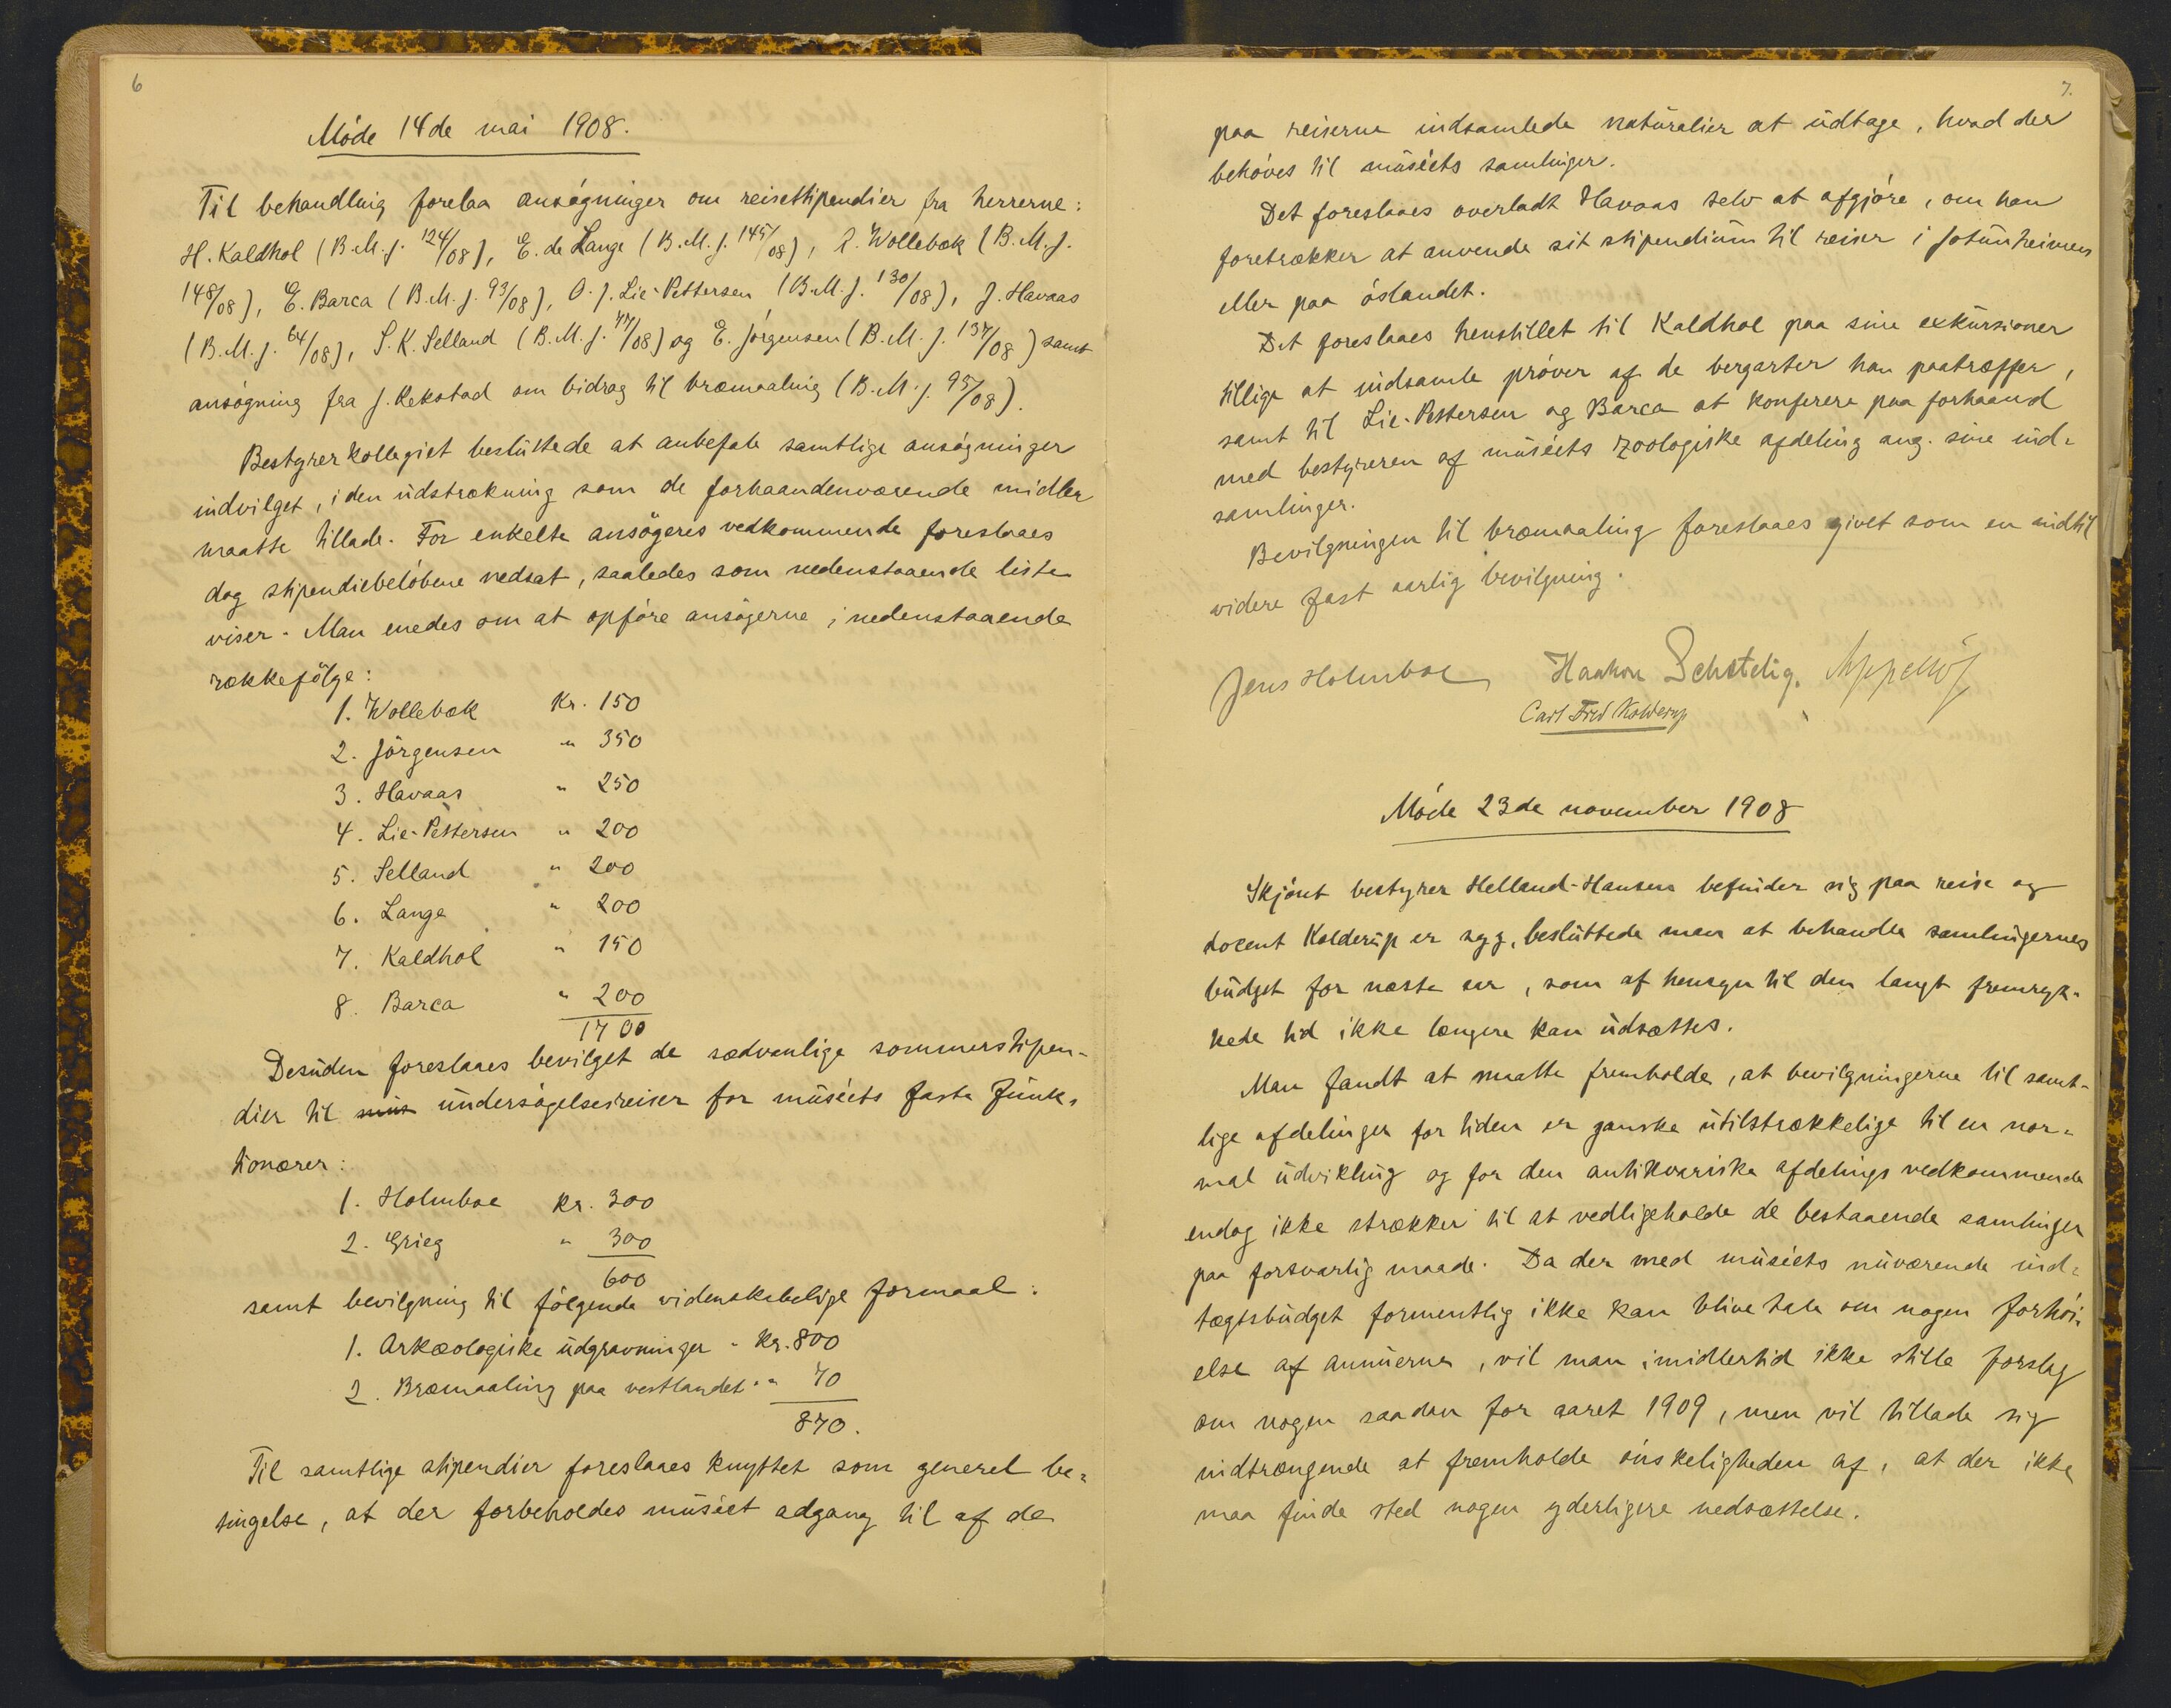 6
Møde 14de mai 1908.
Til behandling forelaa ansøgninger om reisestipendier fra herrerne:
H. Kaldhol (B.M.j. 124/08), E. de Lange (B.M.j. 145/08), A. Wollebæk (B.M.j.
148/08), E. Barca (B.M.j. 93/08), O.J. Lie-Pettersen (B.M.j. 130/08), J. Havaas
(B.M.j. 64/08), S.K. Selland (B.M.j. 77/08) og E. Jørgensen (B.M.j. 137/08) samt
ansøgning fra J. Rekstad om bidrag til bræmaaling (B.M.j. 95/08).
Bestyrerkollegiet besluttede at anbefale samtlige ansøgninger
indvilget, i den udstrækning som de forhaandenværende midler
maatte tillade. For enkelte ansøgeres vedkommende foreslaaes
dog stipendiebeløbene nedsat, saaledes som nedenstaaende liste
viser. Man enedes om at opføre ansøgerne i nedenstaaende
rækkefølge:
1. Wollebæk kr. 150
2. Jørgensen " 350
3. Havaas " 250
4. Lie-Pettersen " 200
5. Selland " 200
6. Lange " 200
7. Kaldhol " 150
8. Barca " 200
1700
Desuden foreslaaes bevilget de sædvanlige sommerstipen-
dier til mus undersøgelsesreiser for muséets faste funk-
tionærer:
1. Holmboe kr. 300
2. Grieg " 300
600
samt bevilgning til følgende videnskabelige formaal:
1. Arkæologiske udgravninger - kr. 800
2. Bræmaaling paa vestlandet . " 70
870.
Til samtlige stipendier foreslaaes knyttet som generel be-
tingelse, at der forbeholdes muséet adgang til af de
7.
paa reiserne indsamlede naturalier at udtage, hvad der
behøves til muséets samlinger.
Det foreslaaes overladt Havaas selv at afgjøre, om han
foretrækker at anvende sit stipendium til reiser i Jotunheimen
eller paa østlandet.
Det foreslaaes henstillet til Kaldhol paa sine exkursioner
tillige at indsamle prøver af de bergarter han paatræffer,
samt til Lie-Pettersen og Barca at konferere paa forhaand
med bestyreren af muséets zoologiske afdeling ang. sine ind-
samlinger.
Bevilgningen til bræmaaling foreslaaes givet som en indtil
videre fast aarlig bevilgning.
Jens Holmboe Haakon Schetelig. Appellöf
Carl Fred Kolderup
Møde 23de november 1908
Skjønt bestyrer Helland-Hansen befinder sig paa reise og
docent Kolderup er syg, besluttede man at behandle samlingernes
budget for næste aar, som af hensyn til den langt fremryk-
kede tid ikke længere kan udsættes.
Man fandt at maatte fremholde, at bevilgningerne til samt-
lige afdelinger for tiden er ganske utilstrækkelige til en nor-
mal udvikling og for den antikvariske afdelings vedkommende
endog ikke strækker til at vedligeholde de bestaaende samlinger
paa forsvarlig maade. Da der med muséets nuværende ind-
tægtsbudget formentlig ikke kan blive tale om nogen forhøi-
else af annuerne, vil man imidlertid ikke stille forslag
om nogen saadan for aaret 1909, men vil tillade sig
indtrængende at fremholde ønskeligheden af, at der ikke
maa finde sted nogen yderligere nedsættelse.